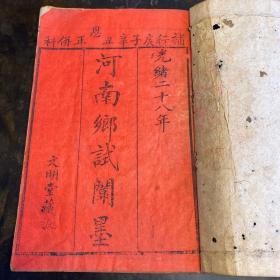 補行庚子辛丑恩正併科
光緒二十八年
河南鄉試闈墨
文明堂藏板